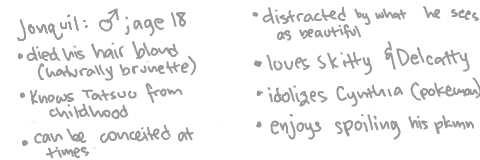 Jonquil: ♂; age 18
• died his hair blond
(naturally brunette)
• Knows Tatsuo from
childhood
• can be conceited at
times
• distracted by what he sees
as beautiful
• loves Skitty & Delcatty
• idolizes Cynthia (pokemon)
• enjoys spoiling his pkmn